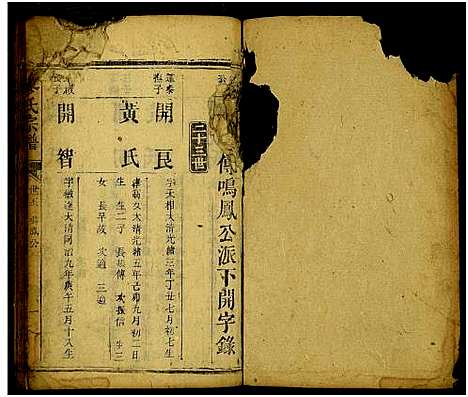 傳鳴鳳公派下開字錄
二十三世
開良
字天相大清光緒三年丁丑七月初七生
黃氏
大清光緒五年己卯九月初二日
生 生二子 長 傳 次振信 生三
女 長早故 次適 三適
開智
字 達大清同治九年庚午五月十八生
氏宗譜
鳳公